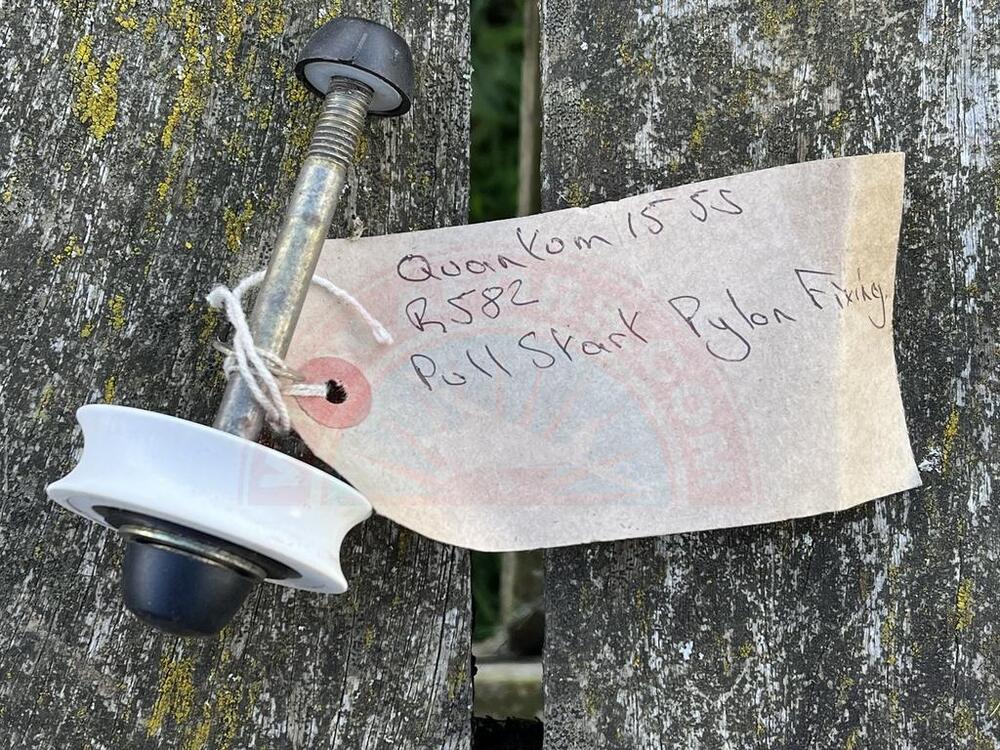 Quantom 15 SS
R582
Pull Start Pylon Fixing.